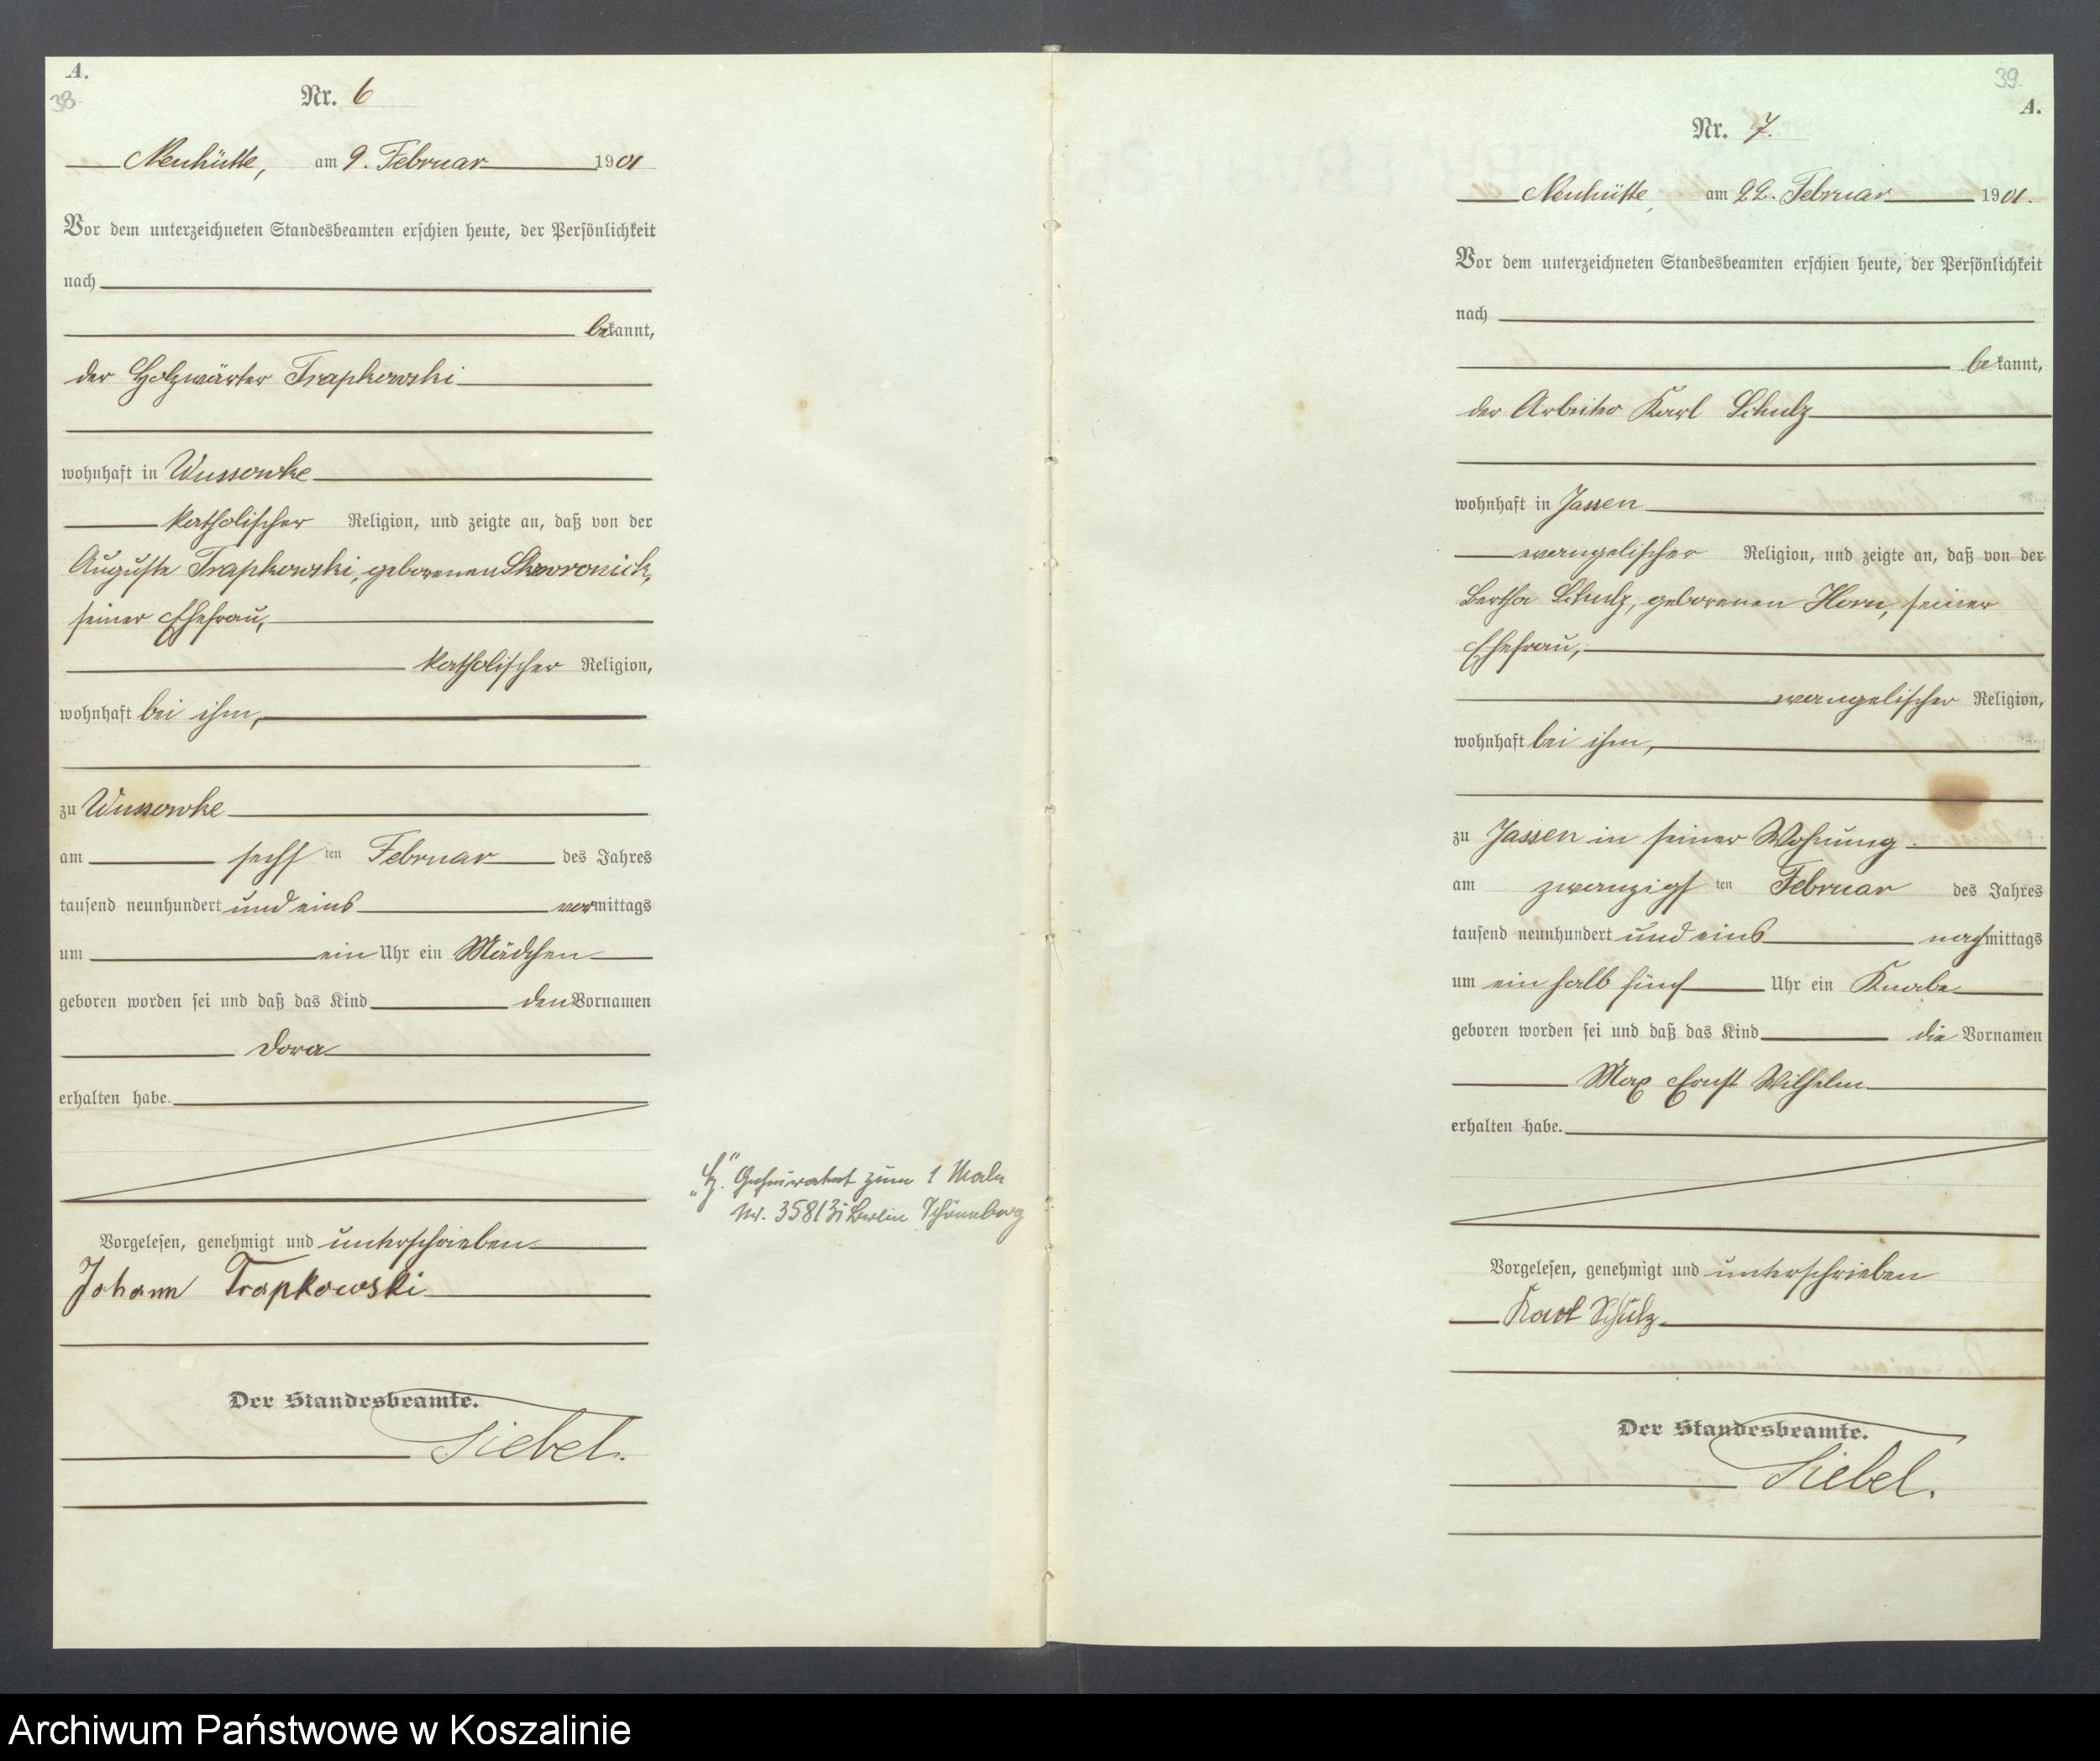 A.
38
Nr. 6
Neuhütte, am 9. Februar 1901
Vor dem unterzeichneten Standesbeamten erschien heute, der Persönlichkeit
nach
bekannt,
der Holzwärter Trapkowski
wohnhaft in Wussowke
katholischer Religion, und zeigte an, daß von der
Auguste Trapkowski, geborenen Skowronick,
seiner Ehefrau,
katholischer Religion,
wohnhaft bei ihm,
zu Wussowke
am sechsten Februar des Jahres
tausend neunhundert und eins vormittags
um ein Uhr ein Mädchen
geboren worden sei und daß das Kind den Vornamen
Dora
erhalten habe.
Vorgelesen, genehmigt und unterschrieben
Johann Trapkowski
Der Standesbeamte.
Siebel.
Geheiratet zum 1 Male
Nr. 358/3 Berlin Schöneberg
39.
A.
Nr. 7.
Neuhütte, am 22. Februar 1901.
Vor dem unterzeichneten Standesbeamten erschien heute, der Persönlichkeit
nach
bekannt,
der Arbeiter Karl Schulz
wohnhaft in Jassen
evangelischer Religion, und zeigte an, daß von der
Bertha Schulz, geborenen Horn, seiner
Ehefrau,
evangelischer Religion,
wohnhaft bei ihm,
zu Jassen in seiner Wohnung
am zwanzigsten Februar des Jahres
tausend neunhundert und eins nachmittags
um ein halb fünf Uhr ein Knabe
geboren worden sei und daß das Kind die Vornamen
Max Ernst Wilhelm
erhalten habe.
Vorgelesen, genehmigt und unterschrieben
Karl Schulz
Der Standesbeamte.
Siebel.
Archiwum Państwowe w Koszalinie